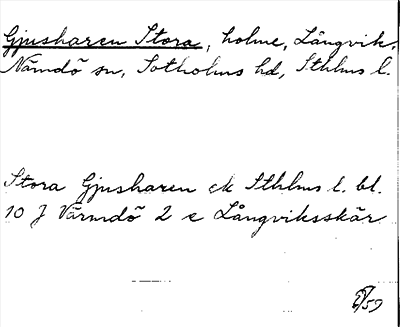 Gjusharen Stora, holme, Långvik,
Nämdö sn, Sotholms hd, Sthlms l.
Stora Gjusharen ek Sthlms l. bl.
10 J Värmdö 2 e Långviksskär
/59